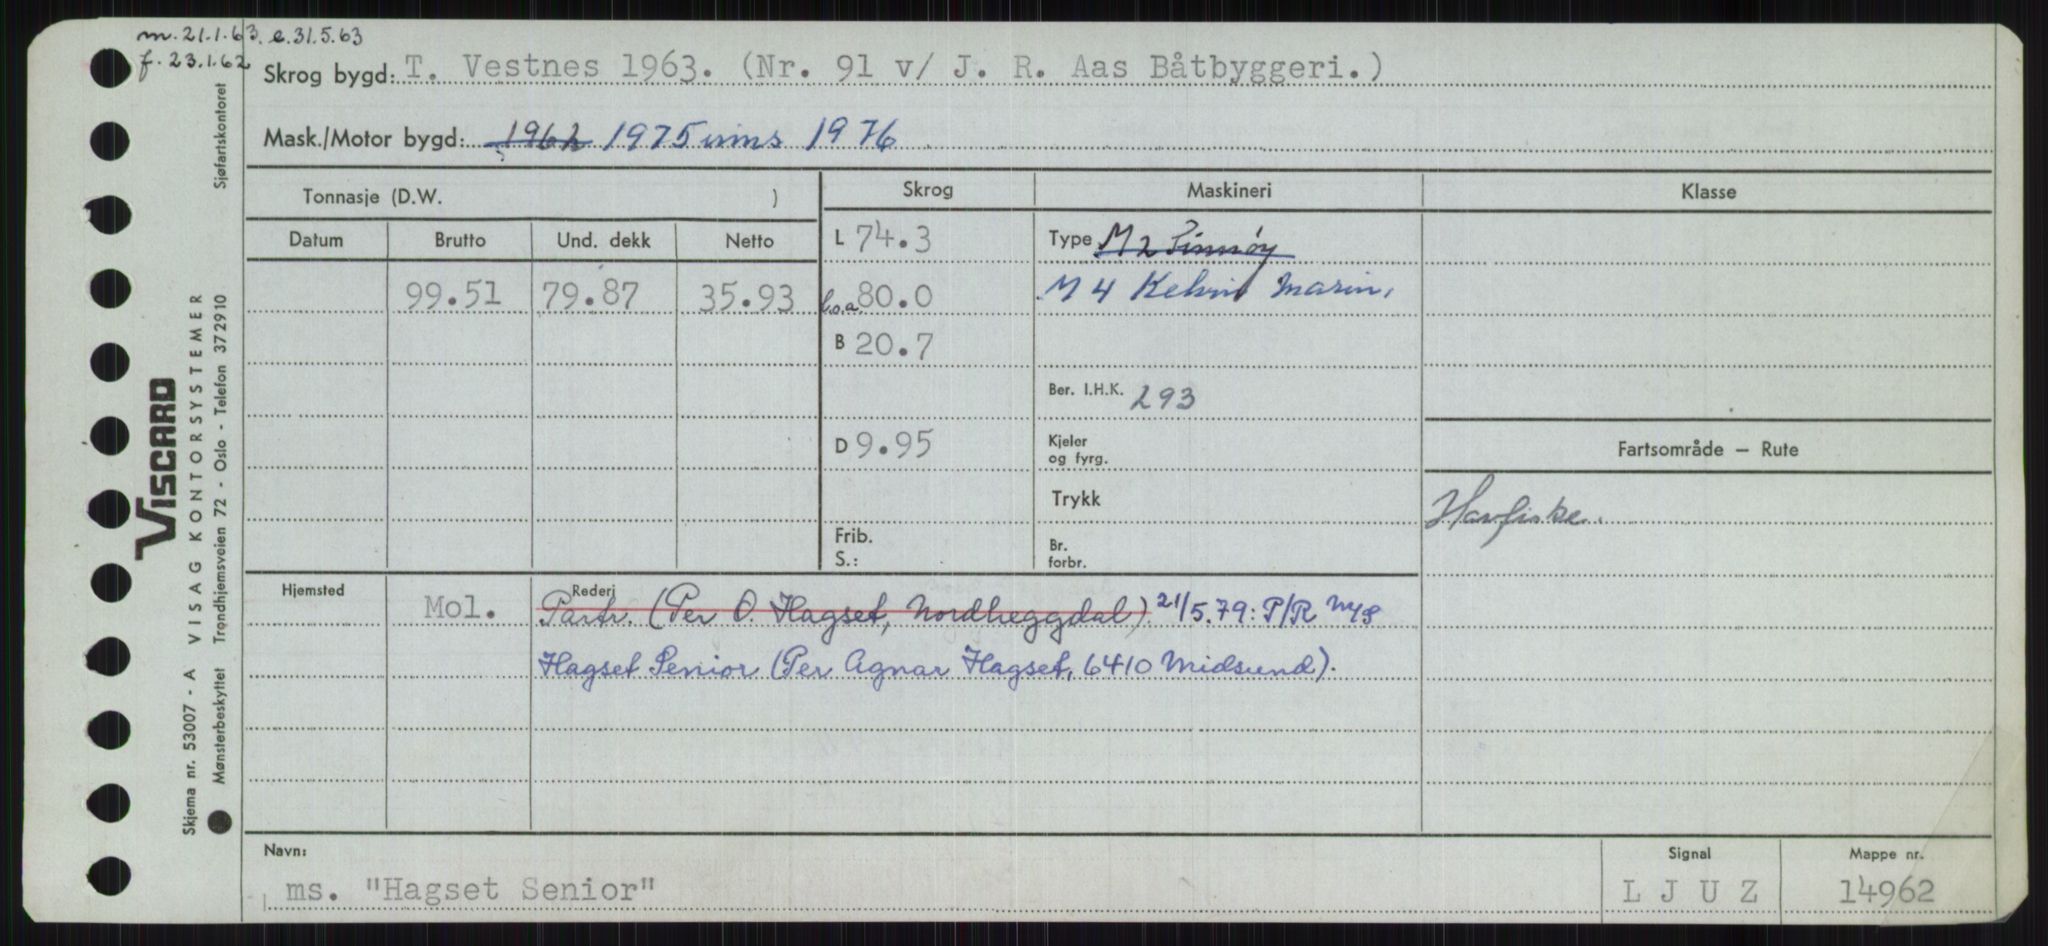 m. 21.1.63. e. 31.5.63
f. 23.1.62
Skrog bygd: T. Vestnes 1963. (Nr. 91 v/ J. R. Aas Båtbyggeri.)
Mask./Motor bygd: 1962 1975 inns 1976
Tonnasje (D.W. )
Skrog
Maskineri
Klasse
Datum
Brutto
Und. dekk
Netto
L 74.3
Type M 2
99.51 79.87 35.93
l.o.a. 80.0
M 4 Kelvin Marin.
B 20.7
Ber. I.H.K. 293
D 9.95
Kjeler
og fyrg.
Fartsområde — Rute
Trykk
Havfiske.
Frib.
S.:
Br.
forbr.
Hjemsted
Mol.
Rederi
Partr. (Per O. Hagset, Nordheggdal). 21/5.79: P/R M/S
Hagset Senior (Per Agnar Hagset, 6410 Midsund).
Navn:
ms. "Hagset Senior"
Signal
L J U Z
Mappe nr.
14962
VISCARD
Skjema nr. 53007 - A VISAG KONTORSYSTEMER
Mønsterbeskyttet Trondhjemsveien 72 - Oslo - Telefon 372910 Sjøfartskontoret